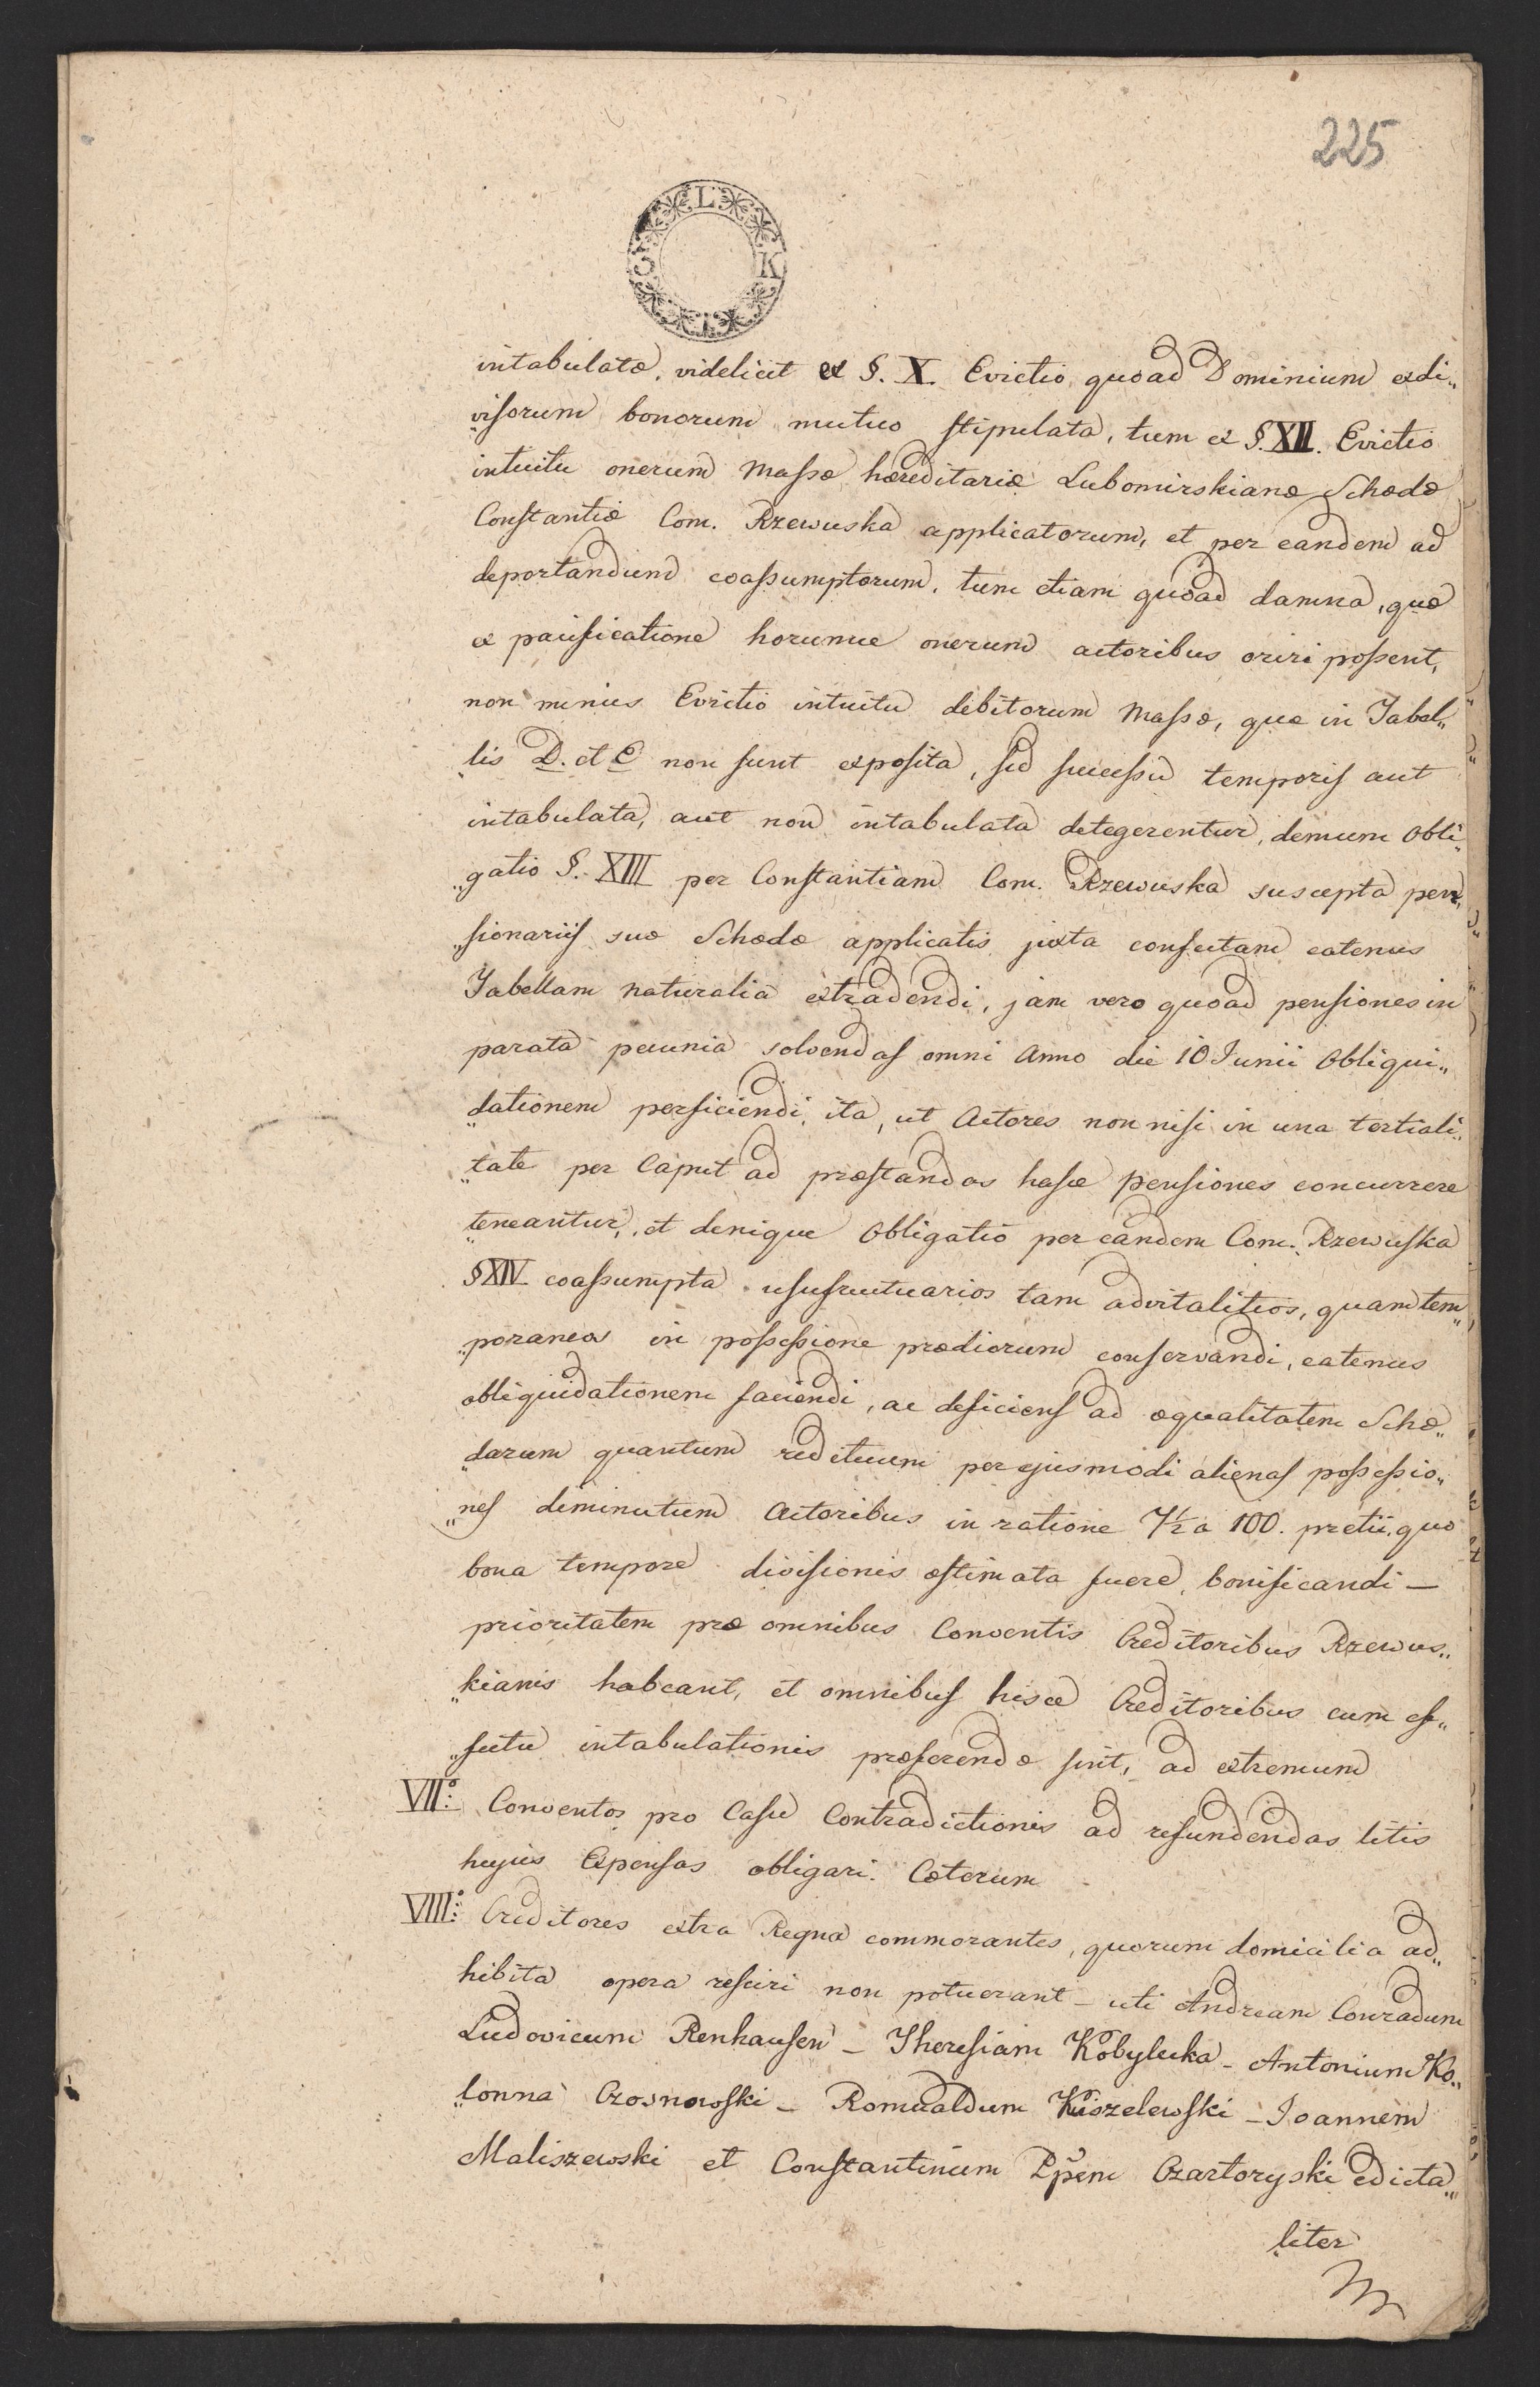 225
L
3 K
intabulatæ, videlicet ex §. X. Evictio quoad Dominium exdi„
„visorum bonorum mutuo stipulata, tum ex §. XII. Evictio
intuitu onerum Massæ hæreditariæ Lubomirskianæ Schedæ
Constantiæ Com. Rzewuska applicatorum, et per eandem ad
deportandum coassumptorum, tum etiam quoad damna, quæ
ex pacificatione horumce onerum actoribus oriri possent,
non minus Evictio intuitu debitorum Massæ, quæ in Tabel„
„lis D. et E non sunt exposita, sed successu temporis aut
intabulata, aut non intabulata detegerentur, demum obli„
„gatio §. XIII per Constantiam Com. Rzewuska suscepta pen„
„sionariis suæ Schedæ applicatis juxta confectam eatenus
Tabellam naturalia extradendi, jam vero quoad pensiones in
parata pecunia solvendas omni Anno die 10 Junii obliqui„
„dationem perficiendi, ita, ut Actores non nisi in una tertiali„
„tate per Caput ad præstandas hasce pensiones concurrere
teneantur, et denique obligatio per eandem Com. Rzewuska
§ XIV coassumpta usufructuarios tam advitalitios, quam tem„
„poraneos in possessione prædiorum conservandi, eatenus
obliquidationem faciendi, ac deficiens ad æqualitatem Sche„
„darum quantum redituum per ejusmodi alienas possessio„
„nes diminutum Actoribus in ratione 7½ a 100. pretii, quo
bona tempore divisionis æstimata fuere, bonificandi —
prioritatem præ omnibus Conventis Creditoribus Rzewus„
„kianis habeant, et omnibus hisce Creditoribus cum ef„
„fectu intabulationis præferendæ sint, ad extremum
VII.º Conventos pro Casu Contradictionis ad refundendas litis
hujus Expensas obligari. Cæterum
VIII.º Creditores extra Regna commorantes, quorum domicilia ad„
hibita opera resciri non potuerant – uti Andream Conradum
Ludovicum Renhausen – Theresiam Kobylecka – Antonium Ko„
„lonna Czosnowski – Romualdum Kiszelewski – Joannem
Maliszewski et Constantinum Ppem Czartoryski edicta„
liter